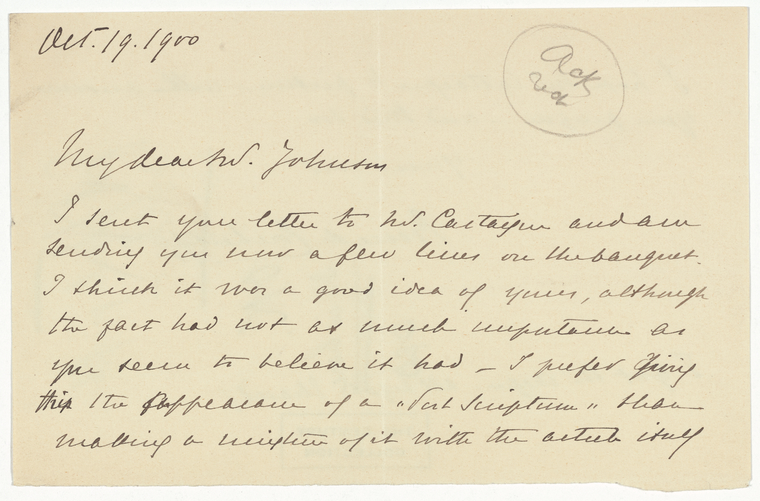 Oct. 19. 1900
Ack
My dear Mr. Johnson
I sent your letter to Mr. Castaigne and am
sending you now a few lines on the banquet.
I think it was a good idea of yours, although
the fact had not as much importance as
you seem to believe it had – I prefer giving
this the appearance of a "Post Scriptum" than
making a mixture of it with the article itself